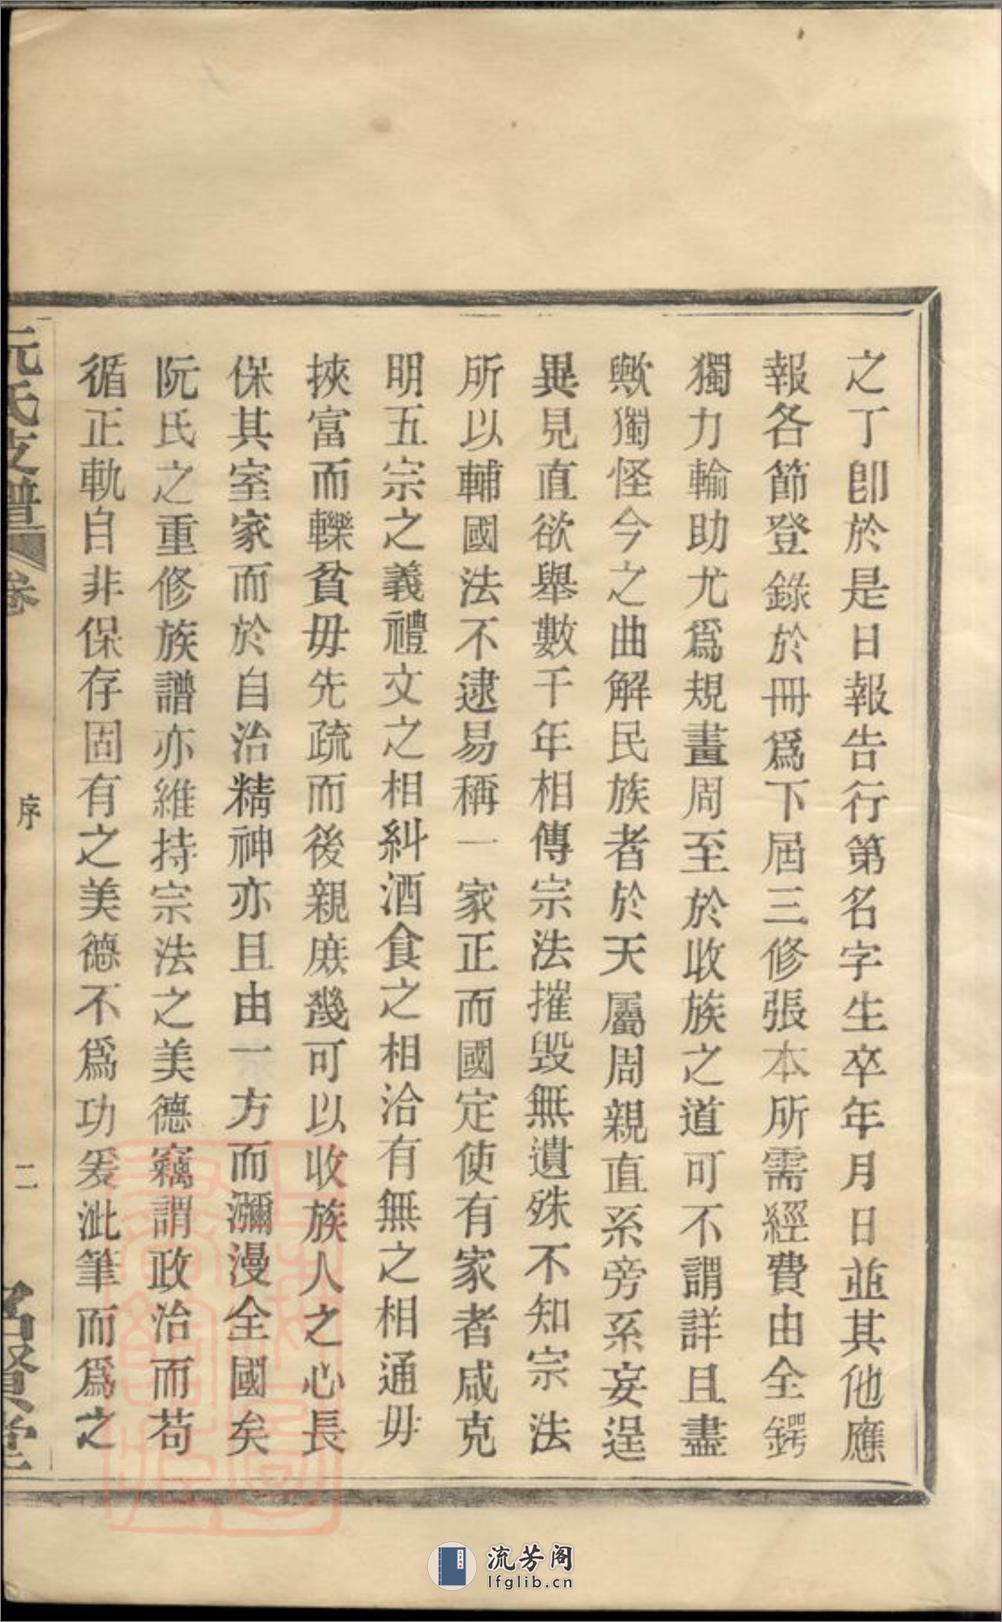 之丁卽於是日報告行第名字生卒年月日並其他應
報各節登錄於冊爲下屆三修張本所需經費由全鍔
獨力輸助尤爲規畫周至於收族之道可不謂詳且盡
歟獨怪今之曲解民族者於天屬周親直系旁系妄逞
異見直欲舉數千年相傳宗法摧毀無遺殊不知宗法
所以輔國法不逮易稱一家正而國定使有家者咸克
明五宗之義禮文之相糾酒食之相洽有無之相通毋
挾富而轢貧毋先疏而後親庶幾可以收族人之心長
保其室家而於自治精神亦且由一方而瀰漫全國矣
阮氏之重修族譜亦維持宗法之美德竊謂政治而苟
循正軌自非保存固有之美德不爲功爰泚筆而爲之
阮氏支譜 卷 序 二
流芳阁
lfglib.cn